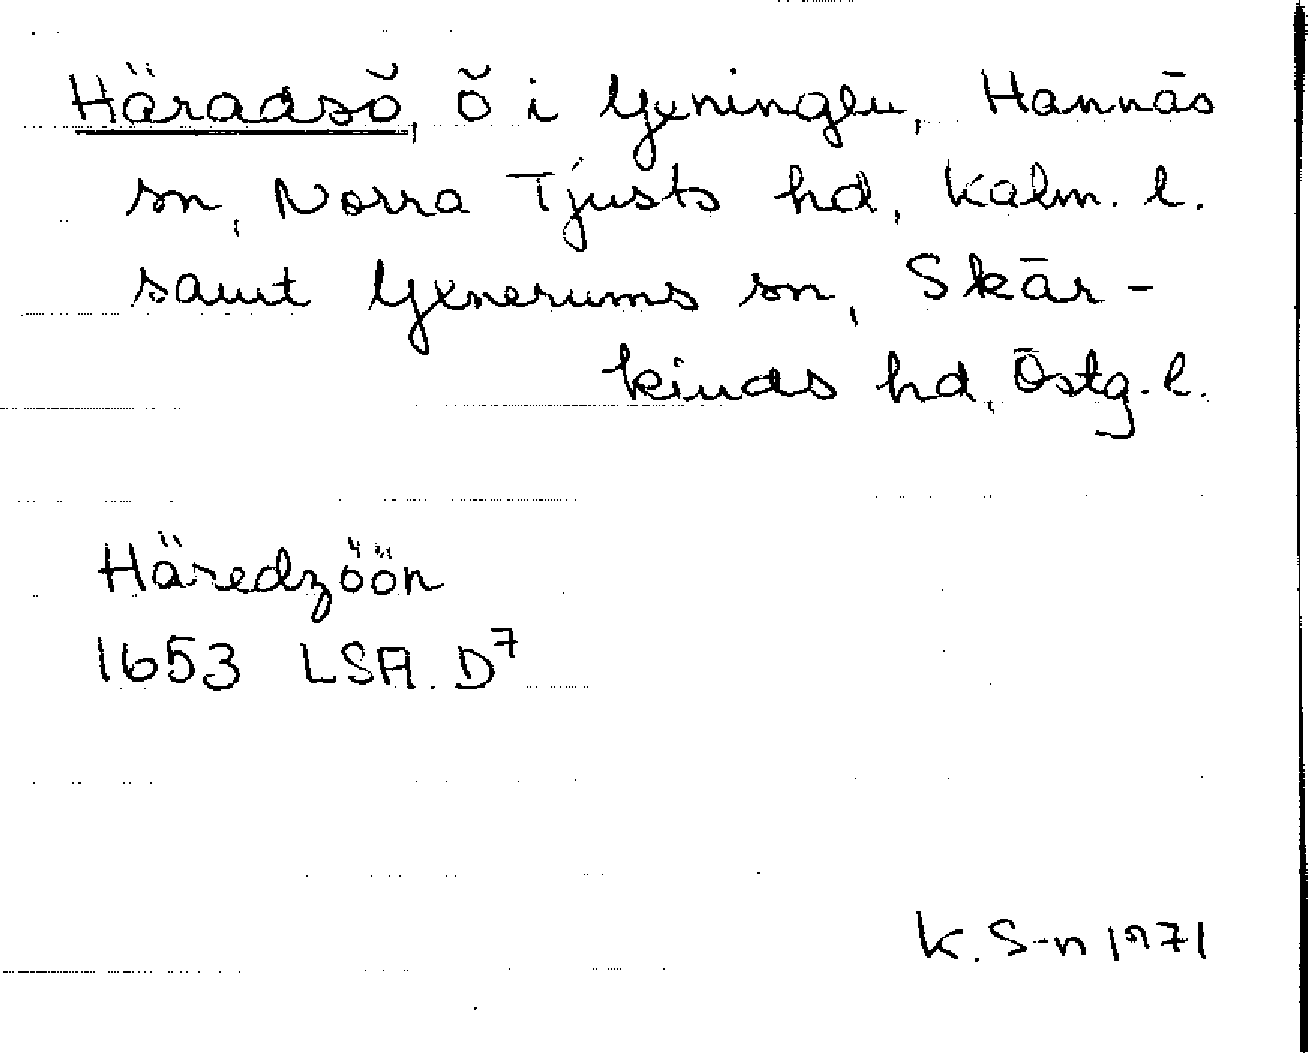 Häradsö, ö i Yxningen, Hannäs
sn, Norra Tjusts hd, Kalm. l.
samt Yxnerums sn, Skär-
kinds hd, Östg. l.
Häredzöön
1653 LSA. D7
K. S-n 1971